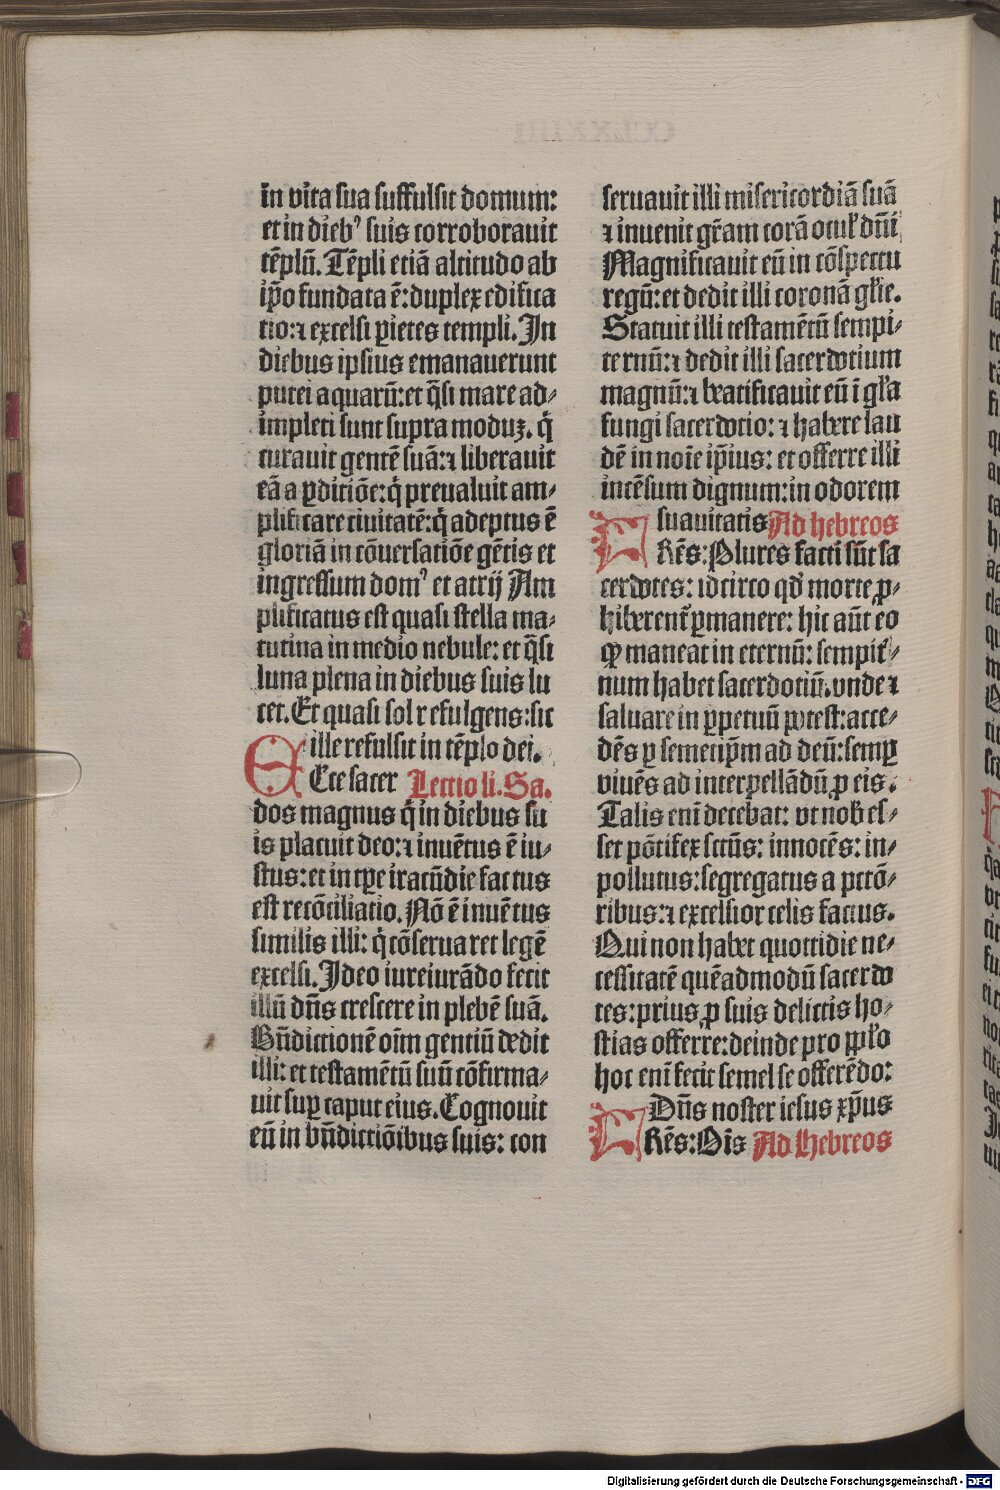 in vita sua suffulsit domum:
et in dieb⁹ suis corroborauit
tēplū. Tēpli etiā altitudo ab
ip̄o fundata ē: duplex edifica
tio: ⁊ excelsi ꝑietes templi. In
diebus ipsius emanauerunt
putei aquarū: et q̄si mare ad⸗
impleti sunt supra moduꝫ. q̇
curauit gentē suā: ⁊ liberauit
eā a ꝑditiōe: q̇ preualuit am⸗
plificare ciuitatē: q̇ adeptus ē
gloriā in cōuersatiōe gētis et
ingressum dom⁹ et atrij Am
plificatus est quasi stella ma⸗
tutina in medio nebule: et q̄si
luna plena in diebus suis lu
cet. Et quasi sol refulgens: sic
ille refulsit in tēplo dei.
ECce sacer Lectio li. Sa.
dos magnus q̇ in diebus su
is placuit deo: ⁊ inuētus ē iu⸗
stus: et in tꝑe iracūdie factus
est recōciliatio. Nō ē inuētus
similis illi: q̇ cōseruaret legē
excelsi. Ideo iureiurādo fecit
illū dn̄s crescere in plebē suā.
Bn̄dictionē oīm gentiū dedit
illi: et testamētū suū cōfirma⸗
uit suꝑ caput eius. Cognouit
eū in bn̄dictiōibus suis: con
seruauit illi misericordiā suā
⁊ inuenit gr̄am corā ocul' dn̄i
Magnificauit eū in cōspectu
regū: et dedit illi coronā gl'ie.
Statuit illi testamētū sempi⸗
ternū: ⁊ dedit illi sacerdotium
magnū: ⁊ beatificauit eū ī gl'a
fungi sacerdotio: ⁊ habere lau
dē in noīe ip̄ius: et offerre illi
incēsum dignum: in odorem
suauitatis Ad hebreos
FRēs: Plures facti sūt sa
cerdotes: idcirco qd' morte ꝓ⸗
hiberent̄ ꝑmanere: hic aūt eo
ꝙ maneat in eternū: sempit'⸗
num habet sacerdotiū. vnde ⁊
saluare in ꝑpetuū potest: acce⸗
dēs ꝑ semetip̄m ad deū: semꝑ
viuēs ad interpellādū ꝓ eis.
Talis enī decebat: vt nob̄ es⸗
set pōtifex sctūs: innocēs: in⸗
pollutus: segregatus a pctō⸗
ribus: ⁊ excelsior celis factus.
Qui non habet quottidie ne⸗
cessitatē quēadmodū sacerdo
tes: prius ꝓ suis delictis ho⸗
stias offerre: deinde pro ppl'o
hoc enī fecit semel se offerēdo:
Dn̄s noster iesus xp̄us
FRēs: Oīs Ad Hebreos
Digitalisierung gefördert durch die Deutsche Forschungsgemeinschaft - DFG